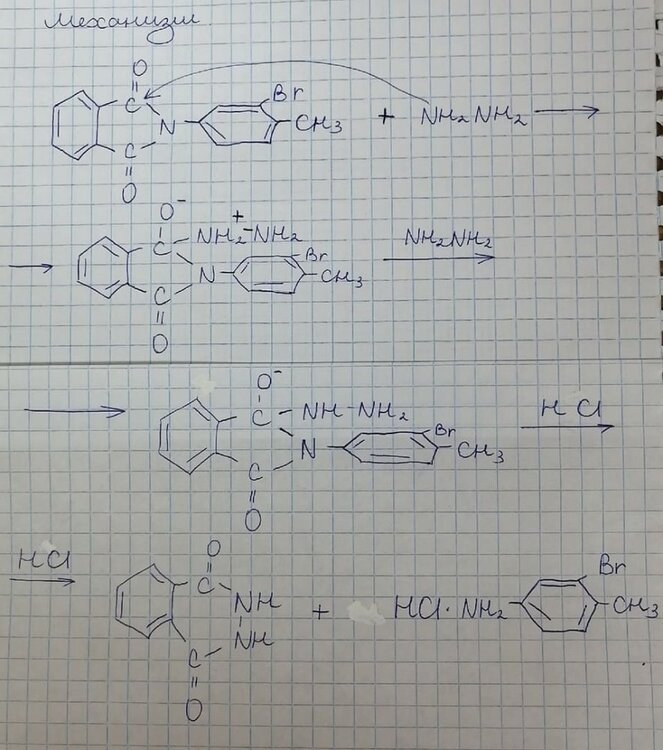 Механизм
O
C
Br
N
CH3 + NH2NH2
C
O
O-
+
C NH2-NH2
Br
N
CH3
NH2NH2
C
O
O-
C NH-NH2
Br
N
CH3
HCl
C
O
HCl
O
C
NH
NH
C
O
+ HCl· NH2
Br
CH3